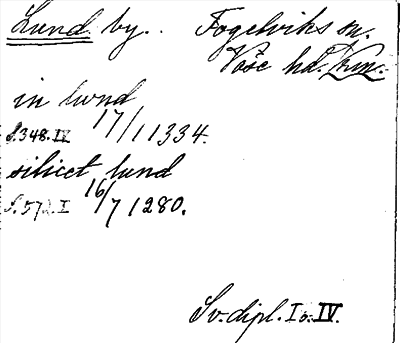 Lund by. Fogelviks sn.
Våse hd. Vrm.
in lwnd
S.348.IV 17/1 1334.
silicet lund
S.572.I 16/7 1280.
Sv. dipl. I o. IV.